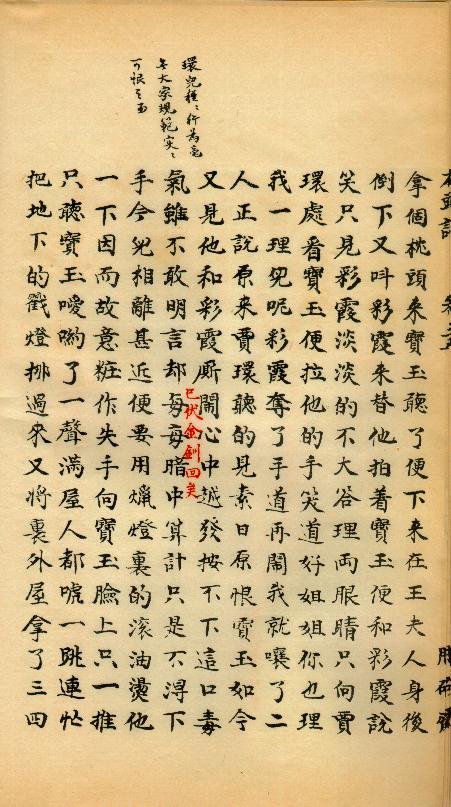 環兒種〻行為毫
無大家規範實〻
可恨之至
拿個枕頭来寶玉聽了便下来在王夫人身後
倒下又呌彩霞来替他拍着寶玉便和彩霞說
笑只見彩霞淡淡的不大答理両眼睛只向賈
環處看寶玉便拉他的手笑道好姐姐你也理
我一理兒呢彩霞奪了手道再鬧我就嚷了二
人正說原来賈環聽的見素日原恨寶玉如今
又見他和彩霞厮鬧心中越發按不下這口毒
氣雖不敢明言却每每暗中筭計只是不淂下
已伏金釧回矣
手今兒相離甚近便要用爉燈裏的滾油燙他
一下因而故意粧作失手向寶玉臉上只一推
只聽寶玉噯喲了一聲滿屋人都唬一跳連忙
把地下的戳燈挪過来又將裏外屋拿了三四